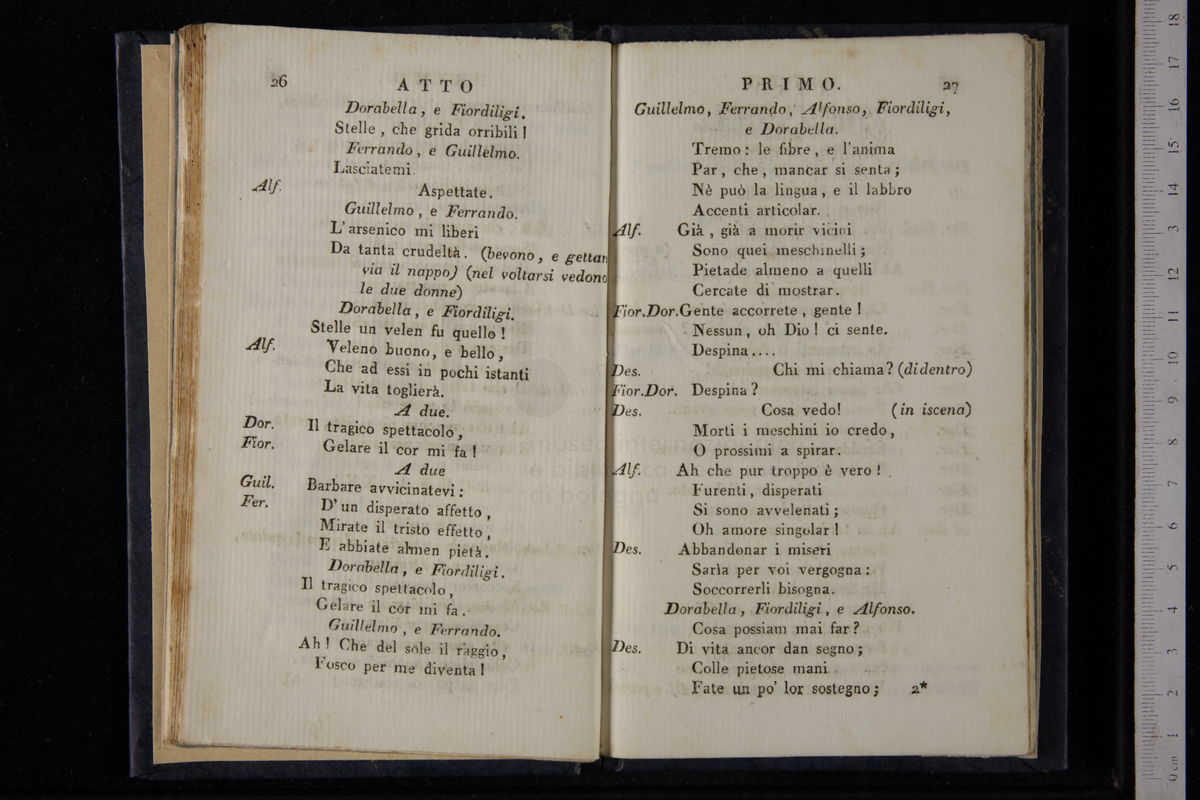 26 ATTO
Dorabella, e Fiordiligi.
Stelle, che grida orribili!
Ferrando, e Guillelmo.
Lasciatemi.
Alf. Aspettate.
Guillelmo, e Ferrando.
L'arsenico mi liberi
Da tanta crudeltà. (bevono, e gettan
via il nappo) (nel voltarsi vedono
le due donne)
Dorabella, e Fiordiligi.
Stelle un velen fu quello!
Alf. Veleno buono, e bello,
Che ad essi in pochi istanti
La vita toglierà.
A due.
Dor. Il tragico spettacolo,
Fior. Gelare il cor mi fa!
A due
Guil. Barbare avvicinatevi:
Fer. D'un disperato affetto,
Mirate il tristo effetto,
E abbiate almen pietà.
Dorabella, e Fiordiligi.
Il tragico spettacolo,
Gelare il cor mi fa.
Guillelmo, e Ferrando.
Ah! Che del sole il raggio,
Fosco per me diventa!
PRIMO. 27
Guillelmo, Ferrando, Alfonso, Fiordiligi,
e Dorabella.
Tremo: le fibre, e l'anima
Par, che, mancar si senta;
Nè può la lingua, e il labbro
Accenti articolar.
Alf. Già, già a morir vicini
Sono quei meschinelli;
Pietade almeno a quelli
Cercate di mostrar.
Fior.Dor. Gente accorrete, gente!
Nessun, oh Dio! ci sente.
Despina....
Des. Chi mi chiama? (di dentro)
Fior.Dor. Despina?
Des. Cosa vedo! (in iscena)
Morti i meschini io credo,
O prossimi a spirar.
Alf. Ah che pur troppo è vero!
Furenti, disperati
Si sono avvelenati;
Oh amore singolar!
Des. Abbandonar i miseri
Sarìa per voi vergogna:
Soccorrerli bisogna.
Dorabella, Fiordiligi, e Alfonso.
Cosa possiam mai far?
Des. Di vita ancor dan segno;
Colle pietose mani
Fate un po' lor sostegno; 2*
museo internazionale
e biblioteca
di bologna
0 cm 1 2 3 4 5 6 7 8 9 10 11 12 13 14 15 16 17 18